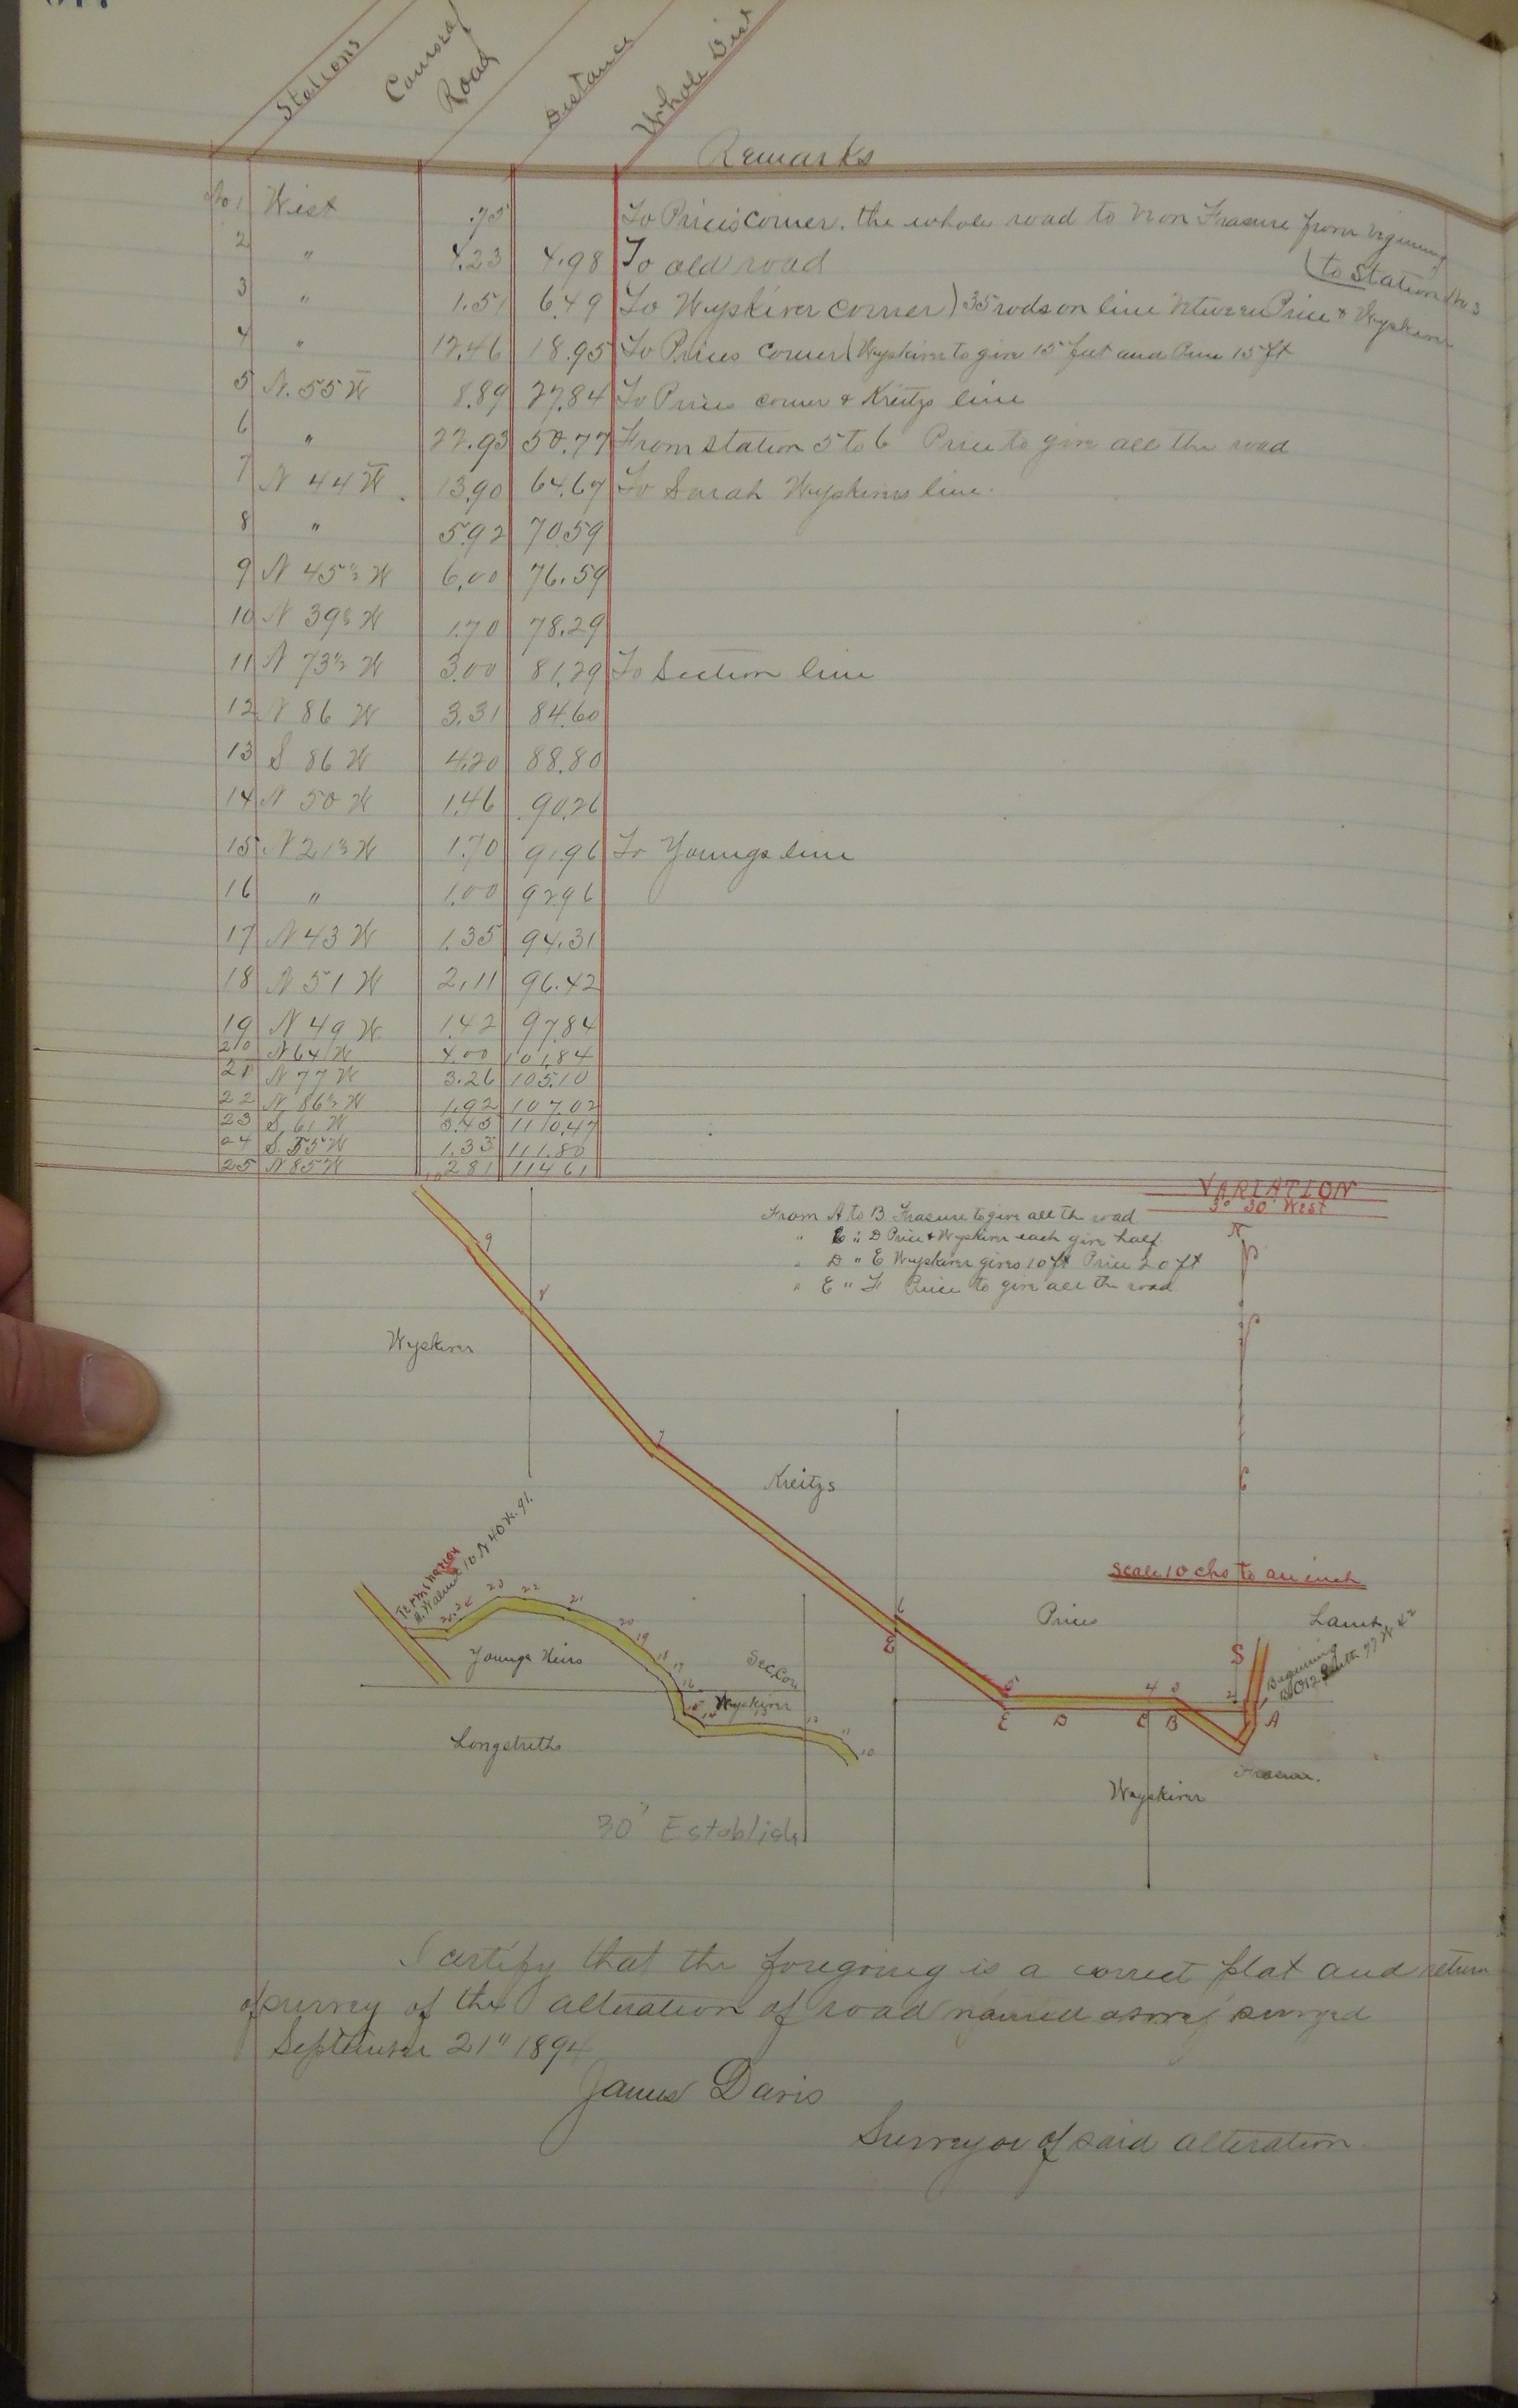 Stations Course of Road Distance Whole Dist Remarks
No 1 West .75 To Prices corner. the whole road to on Frasure from
2 " 4.23 4.98 To old road (to Station No 3
3 " 1.51 6.49 To Wyskiver corner) 35 rods on line between Price & Wyskiver
4 " 12.46 18.95 To Prices corner (Wyskiver to give 15 feet and Price 15 ft
5 N. 55 W 8.89 27.84 To Prices corner & Kreitzs line
6 " 22.93 50.77 From station 5 to 6 Price to give all the road
7 N 44 W 13.90 64.67 To Sarah Wyskivers line.
8 " 5.92 70.59
9 N 45½ W 6.00 76.59
10 N 39½ W 1.70 78.29
11 N 73½ W 3.00 81.29 To Section line
12 N 86 W 3.31 84.60
13 S 86 W 4.20 88.80
14 N 50 W 1.46 90.26
15 N 21½ W 1.70 91.96 To Youngs line
16 " 1.00 92.96
17 N 43 W 1.35 94.31
18 N 51 W 2.11 96.42
19 N 49 W. 1.42 97.84
20 N 64 W 4.00 101.84
21 N 77 W 3.26 105.10
22 N. 86½ W 1.92 107.02
23 S. 61 W 3.45 110.47
24 S. 55 W 1.33 111.80
25 N 85 W 2.81 114.61
VARIATION
3° 30' West
From A to B Frasure to give all the road
" C " D Price & Wyskiver each give half.
" D " E Wyskiver gives 10 ft Price 20 ft
" E " F Price to give all the road
N
10
9
8
Wyskiver
7
Kreitzs
Scale 10 chs to an inch
Termination
Walnut 10 N 40 W. 91.
6
Price
Lamt
S
Beginning
23 22 21
20 19 18 17 16
Youngs Heirs
Sec. Cor
Wyskiver
15 14 13 12 11 10
5 4 3 2
E D C B A
Longstreths
Frasure.
Wayskiver
30" Establish
I certify that the foregoing is a correct plat and return
of survey of the alteration of road named above surveyed
September 21" 1894
James Davis
Surveyor of said alteration.